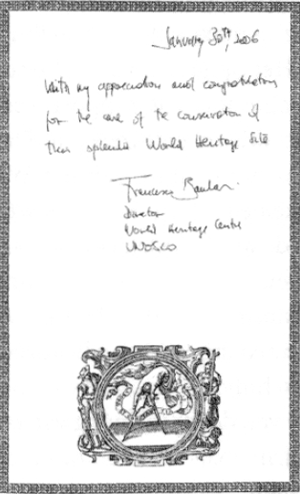 January 30th, 2006
With my appreciation and congratulations
for the care of the conservation of
this splendid World Heritage Site
Francesco Bandarin
Director
World Heritage Centre
UNESCO